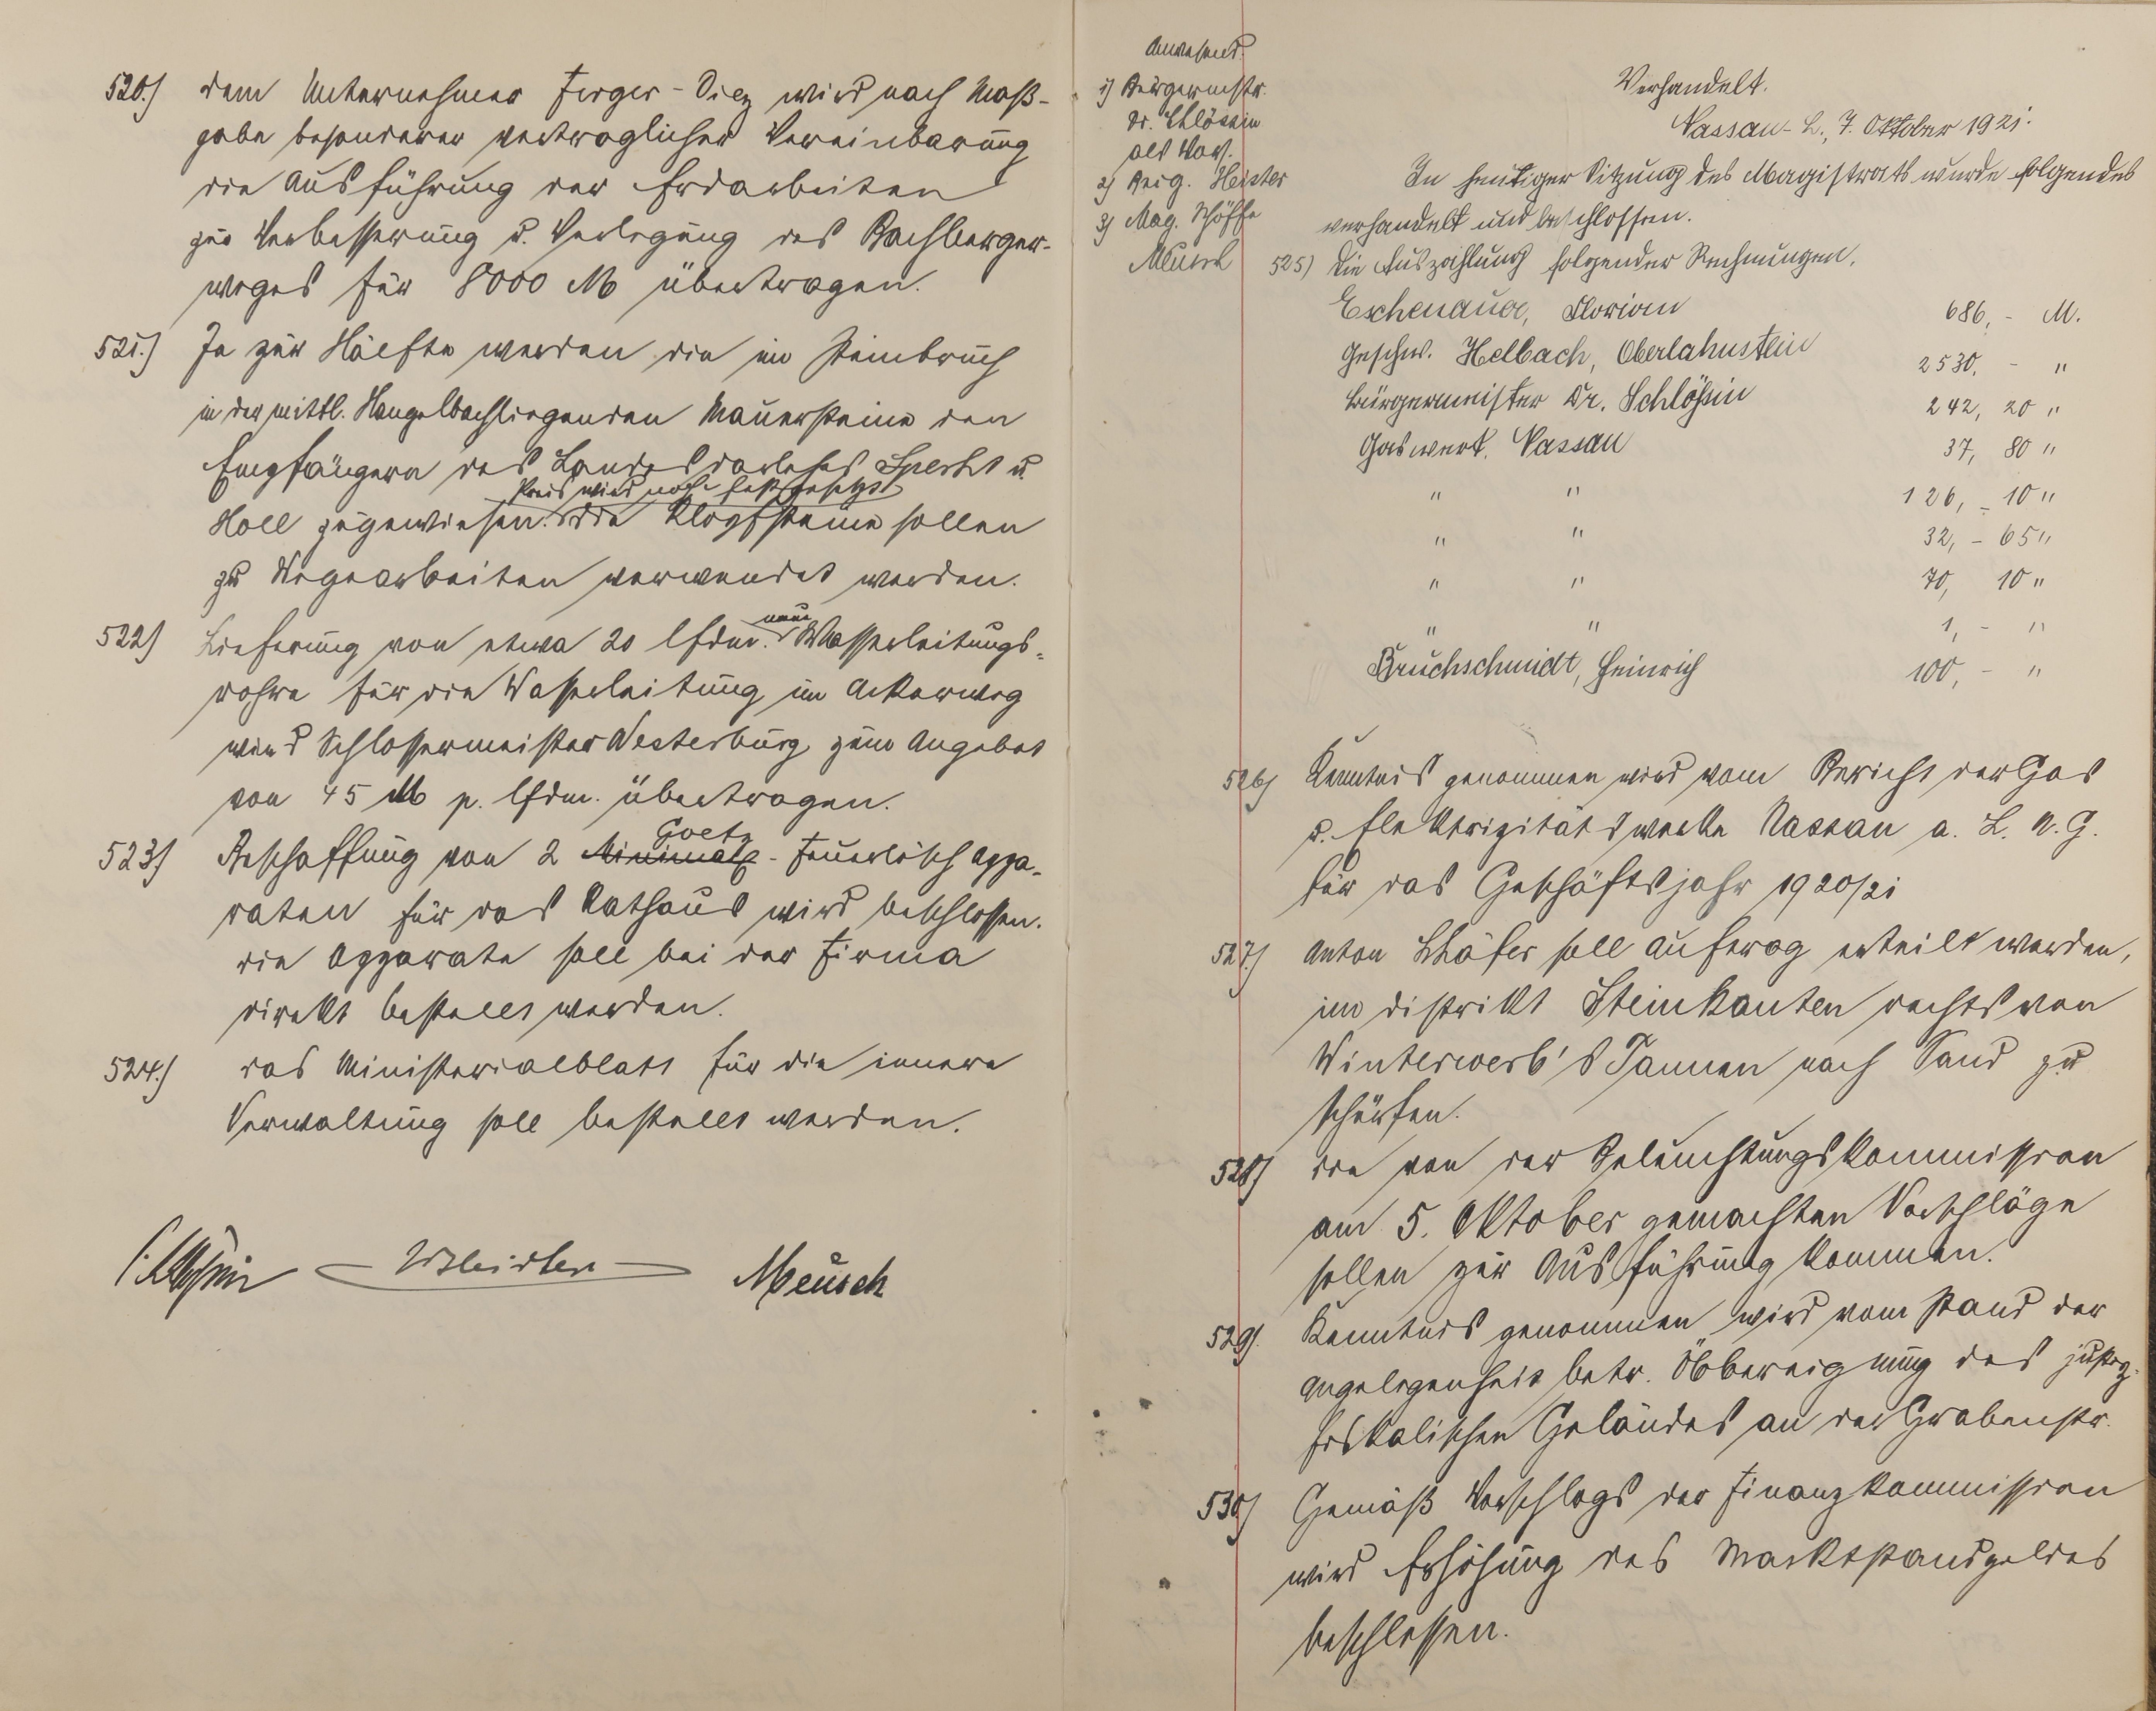 520.) dem Unternehmer Ferger-Diez wird nach Maß-
gabe besonderer vertraglicher Vereinbarung
die Ausführung der Erdarbeiten
zur Verbesserung u. Verlegung des Bachberger-
weges für 8000 M übertragen.
521.) Je zur Hälfte werden die im Steinbruch
in der mittl. Hangelbach liegenden Mauersteine den
Empfängern des Landesdarlehes Specht u.
Preis wird noch festgesetzt
Holl zugewiesen. die Klopfsteine sollen
zu Wegearbeiten verwendet werden.
522) Lieferung von etwa 20 lfdm. neue Wasserleitungs-
rohre für die Wasserleitung im Ackerweg
wird Schlossermeister Westerburg zum Angebot
von 45 M p. lfdm. übertragen.
523) Beschaffung von 2 Minimax Goetz - Feuerlösch appa-
raten für das Rathaus wird beschlossen.
die Apparate soll bei der Firma
direkt bestellt werden.
524.) das Ministerialblatt für die innere
Verwaltung soll bestellt werden.
Meusch
Anwesend.
1) Bürgermstr.
Dr. Schlössin
als Vors.
2) Beig. Heister
3) Mag. Schöffe
Meusch
Verhandelt.
Nassau-L., 7. Oktober 1921.
In heutiger Sitzung des Magistrats wurde folgendes
verhandelt und beschlossen.
525) Die Auszahlung folgender Rechnungen.
Eschenauer, Florian 686, - M.
Geschw. Helbach, Oberlahnstein 2530, - "
Bürgermeister Dr. Schlössin 242, 20 "
Gaswerk. Nassau 37, 80 "
" " 126, - 10 "
" " 32, - 65 "
" " 70, 10 "
" " 1, - "
Bruchschmidt, Heinrich 100, - "
526) Kenntnis genommen wird vom Bericht der Gas
u. Elektrizitätswerke Nassau a. L. A.G.
für das Geschäftsjahr 1920/21
527.) Anton Schäfer soll Auftrag erteilt werden,
im Distrikt Steinkauten rechts von
Winterwerb's Tannen nach Sand zu
schürfen.
528) die von der Beleuchtungskommission
am 5. Oktober gemachten Vorschläge
sollen zur Ausführung kommen.
529) Kenntnis genommen wird vom Stand der
Angelegenheit betr. Übereignung des justiz-
fiskalischen Geländes an der Grabenstr.
530) Gemäß Vorschlags der Finanzkommission
wird Erhöhung des Marktstandgeldes
beschlossen.